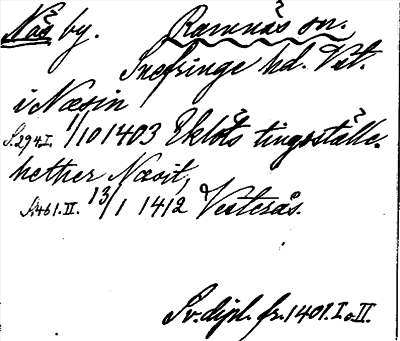 Näs by. Ramnäs sn.
Snefringe hd. Vst.
i Næsin
S.294.I. 1/10 1403 Eklöts tingsställe.
hether Næsit,
S.461.II. 13/1 1412 Vesterås.
Sv. dipl. fr. 1401. I o. II.